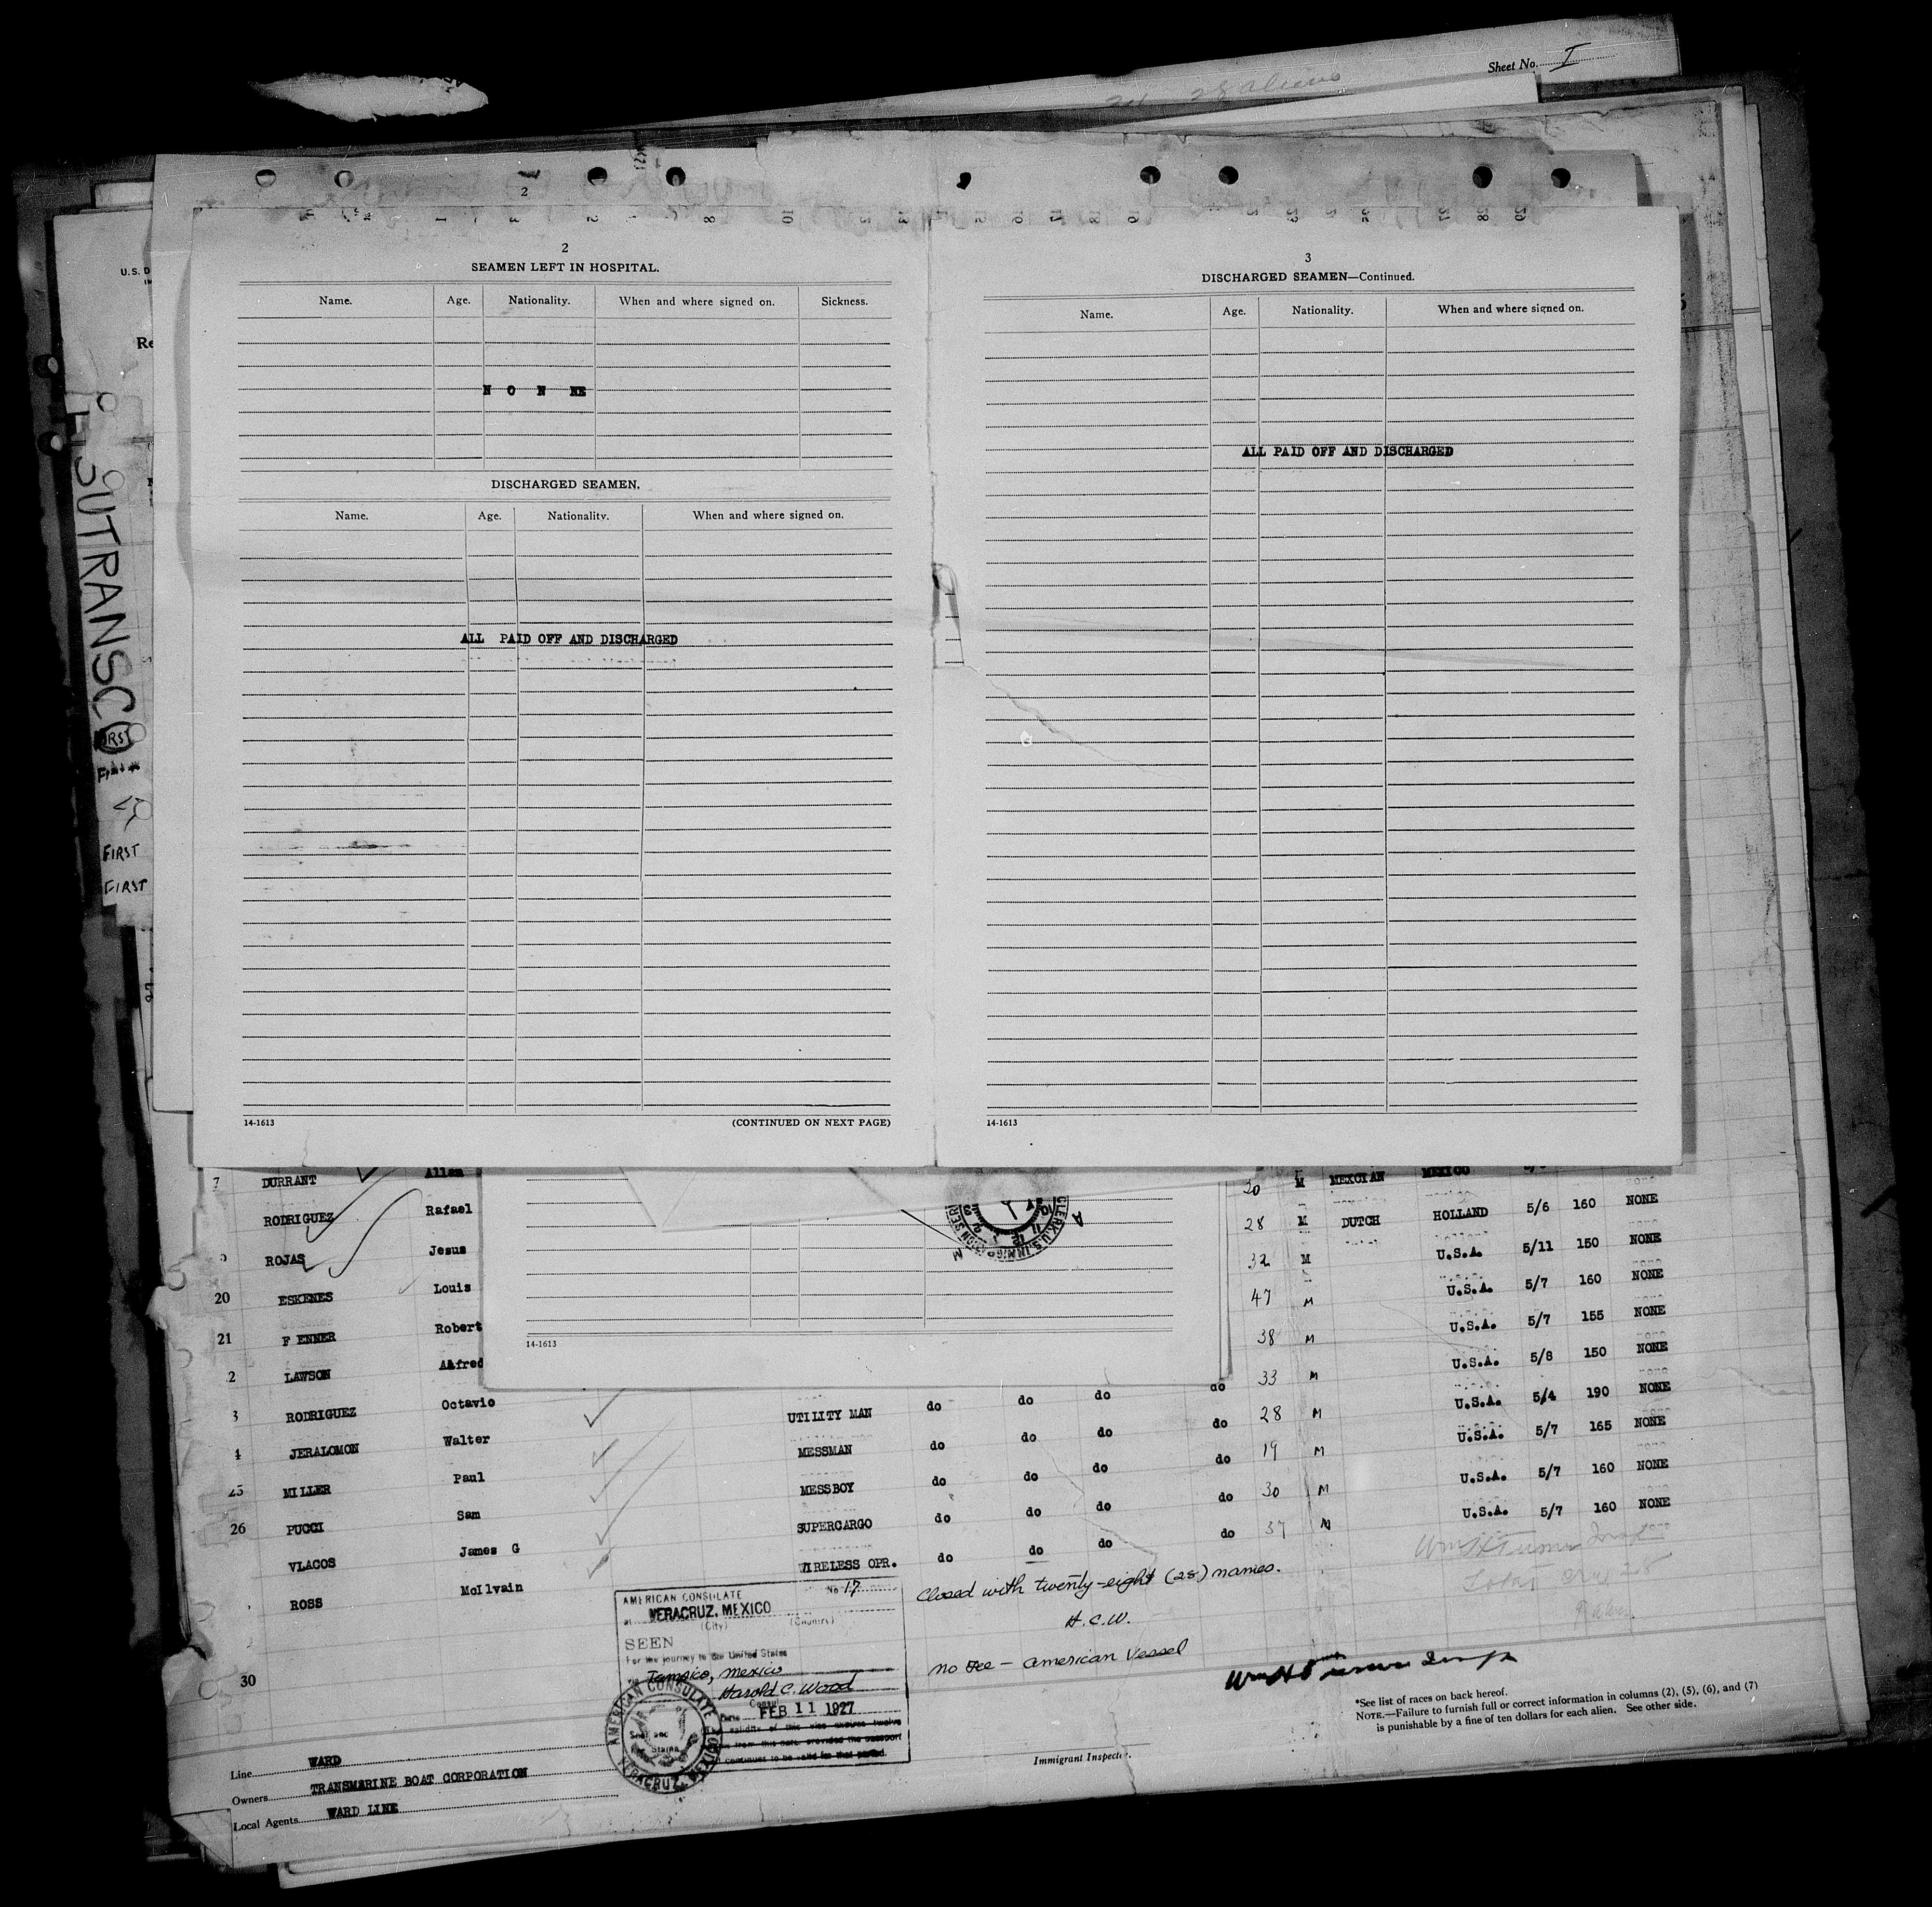 Sheet No. I
28 aliens
2
2
SEAMEN LEFT IN HOSPITAL.
Name. Age. Nationality. When and where signed on. Sickness.
N O N NE
DISCHARGED SEAMEN.
Name. Age. Nationality. When and where signed on.
ALL PAID OFF AND DISCHARGED
14-1613 (CONTINUED ON NEXT PAGE)
3
DISCHARGED SEAMEN—Continued.
Name. Age. Nationality. When and where signed on.
ALL PAID OFF AND DISCHARGED
14-1613
U.S. D
Re
SUTRANSCO
FIRST
FIRST
14-1613
7 DURRANT Allan 30 M MEXCIAN MEXICO
RODRIGUEZ Rafael 28 M DUTCH HOLLAND 5/6 160 NONE
9 ROJAS Jesus 32 M U.S.A. 5/11 150 NONE
20 ESKENES Louis 47 M U.S.A. 5/7 160 NONE
21 F ENNER Robert 38 M U.S.A. 5/7 155 NONE
2 LAWSON Alfred do 33 M U.S.A. 5/8 150 NONE
3 RODRIGUEZ Octavio UTILITY MAN do do do do 28 M U.S.A. 5/4 190 NONE
4 JERALOMON Walter MESSMAN do do do do 19 M U.S.A. 5/7 165 NONE
25 MILLER Paul MESSBOY do do do do 30 M U.S.A. 5/7 160 NONE
26 PUCCI Sam SUPERCARGO do do do do 37 M U.S.A. 5/7 160 NONE
VLACOS James G WIRELESS OPR. do do do
ROSS McIlvain
30
AMERICAN CONSULATE No 17
at VERACRUZ, MEXICO
(City) (Country)
SEEN
For the journey to the United States
Tampico, Mexico
Harold C. Wood
Consul
Date FEB 11 1927
The validity of this visa expires twelve
from this date provided the passport
continues to be valid for that period.
AMERICAN CONSULATE
VERACRUZ, MEXICO
Closed with twenty-eight (28) names.
H.C.W.
No Fee - American Vessel
Immigrant Inspector.
*See list of races on back hereof.
NOTE.—Failure to furnish full or correct information in columns (2), (5), (6), and (7)
is punishable by a fine of ten dollars for each alien. See other side.
Line WARD
Owners TRANSMARINE BOAT CORPORATION
Local Agents WARD LINE